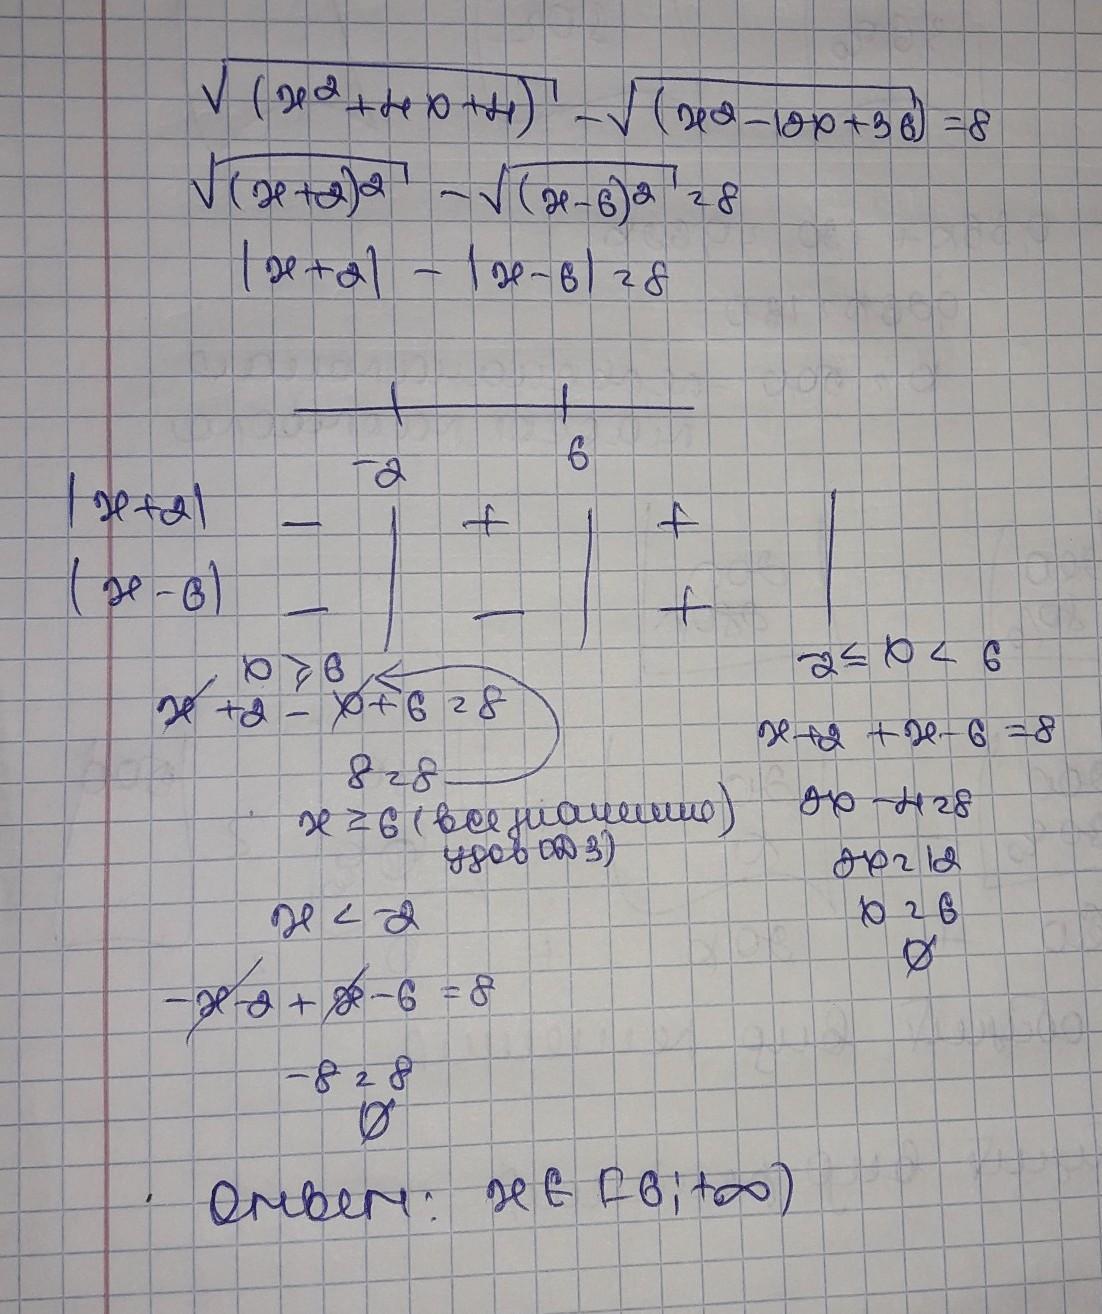 √(x²+4x+4) - √(x²-12x+36) = 8
√(x+2)² - √(x-6)² = 8
|x+2| - |x-6| = 8
-2 6
|x+2| - + +
(x-6) - - +
x ≥ 6
x+2-x+6=8
8=8
x ≥ 6 (все значения
удов ОДЗ)
-2 ≤ x < 6
x+2+x-6=8
2x-4=8
2x=12
x=6
∅
x < -2
-x-2+x-6=8
-8=8
∅
Ответ: x ∈ [6;+∞)